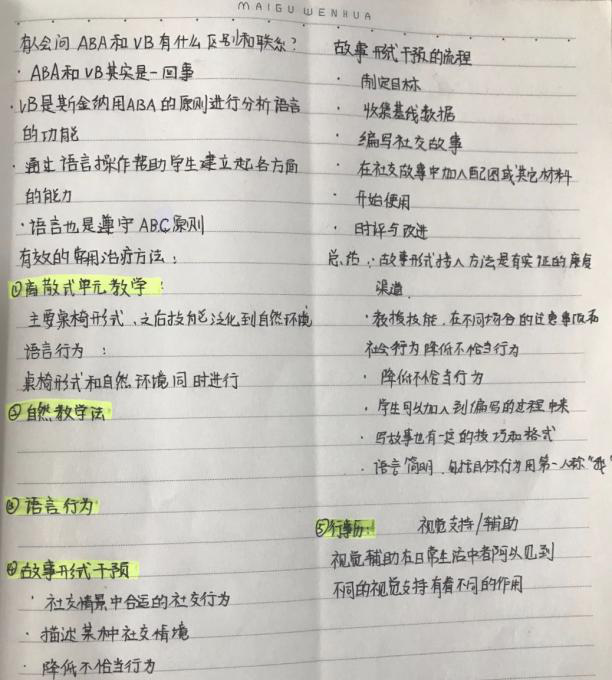 MAIGU WENHUA
有人会问 ABA和VB有什么区别和联系?
· ABA和VB其实是一回事
· VB是斯金纳用ABA的原则进行分析语言
的功能
· 通过语言操作帮助学生建立起各方面
的能力
· 语言也是遵守ABC原则
有效的常用治疗方法:
①离散式单元教学:
主要桌椅形式、之后技能泛化到自然环境
语言行为:
桌椅形式和自然环境同时进行
②自然教学法
③语言行为
④故事形式干预
· 社交情景中合适的社交行为
· 描述某种社交情境
· 降低不恰当行为
故事形式干预的流程
· 制定目标
· 收集基线数据
· 编写社交故事
· 在社交故事中加入配图或其它材料
· 开始使用
· 时评与改进
总结:故事形式接入方法是有实证的康复
渠道.
· 教授技能,在不同场合的注意事项和
社会行为降低不恰当行为
· 降低不恰当行为
· 学生可以加入到编写的过程中来
· 写故事也有一定的技巧和格式
· 语言简明.包括目标行为用第一人称"我"
⑤行事历: 视觉支持/辅助
视觉辅助在日常生活中都可以见到
不同的视觉支持有着不同的作用